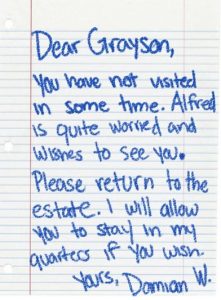 Dear Grayson,
You have not visited
in some time. Alfred
is quite worried and
wishes to see you.
Please return to the
estate. I will allow
you to stay in my
quarters if you wish.
Yours, Damian W.